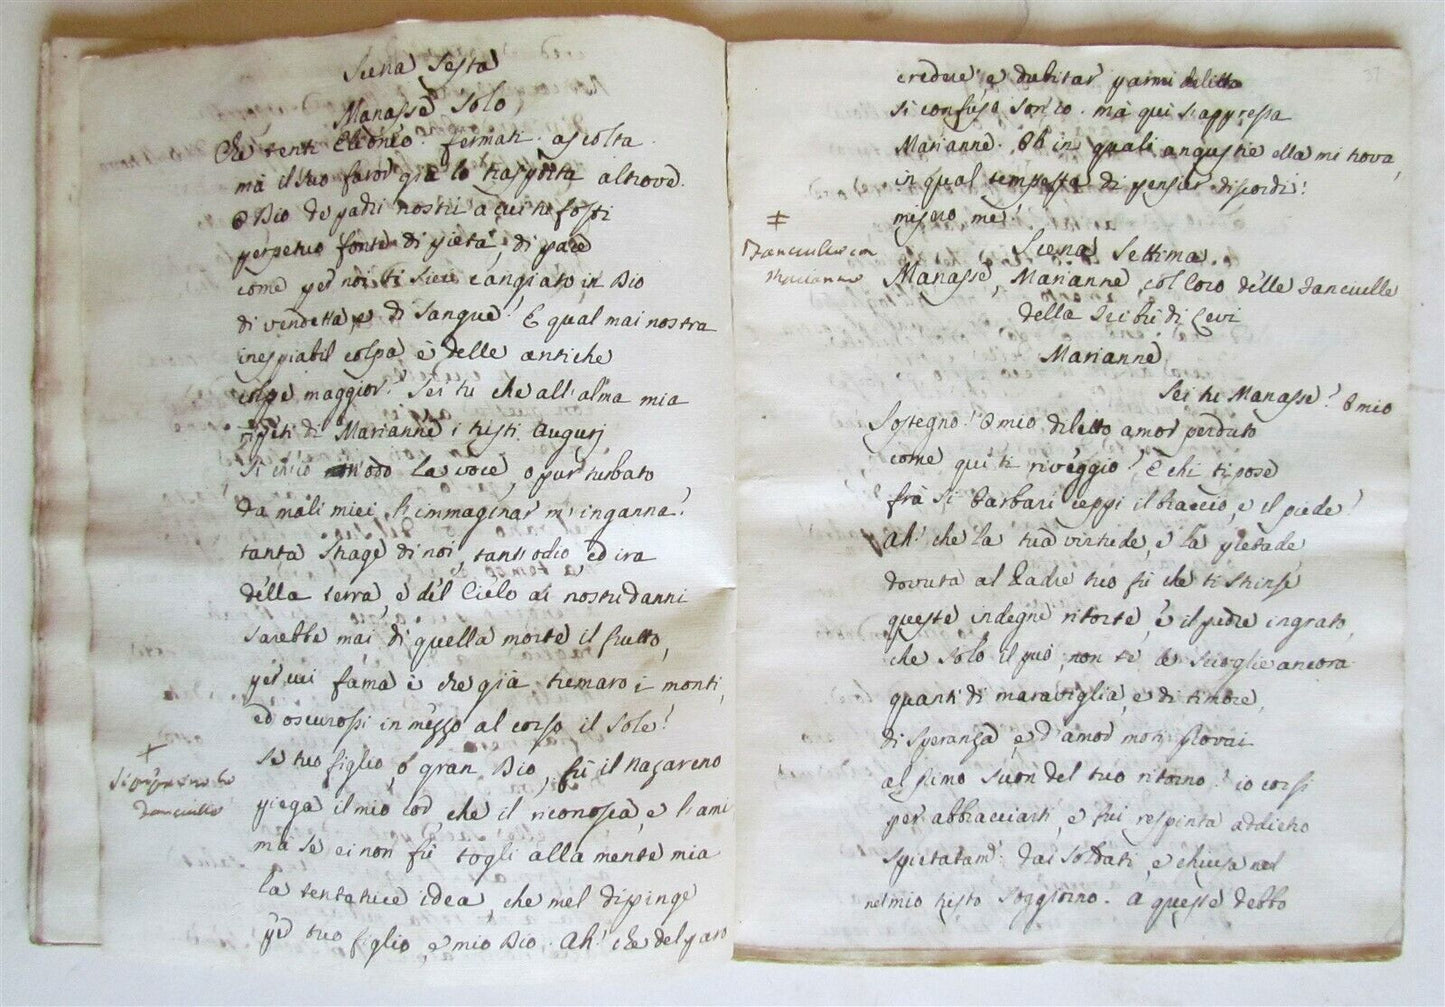 Scena Sesta
Manasse solo
Che tenti Eleonèo. fermati. ascolta.
mà il suo furor già lo trasporta altrove.
O Dio de padri nostri a cui tu fosti
perpetuo fonte di pietà, di pace
come per noi ti sieci cangiato in Dio
di vendetta, e di sangue! E qual mai nostra
inespiabil colpa è delle antiche
colpe maggior? Sei tu che all'alma mia
ripeti di Marianne i tristi augurj
Sì ch'io n'odo la voce, o pur turbato
da mali miei, l'immaginar m'inganna?
tanta strage di noi, tant'odio, ed ira
della terra, e del Cielo ai nostri danni
sarebbe mai di quella morte il frutto,
per cui fama è che già tremaro i monti,
ed oscurossi in mezzo al corso il Sole?
Se tuo figlio, ò gran Dio, fù il Nazareno
piega il mio cor, che il riconosca, e l'ami
ma se ei non fù togli alla mente mia
la tentatrice idea, che mel dipinge
per tuo figlio, e mio Dio. Ah! che del paro
+
donzelle
credere e dubitar parmi delitto
sì confuso son io. mà qui s'appressa
Marianne. Oh in quali angustie ella mi trova,
in qual tempesta di pensier discordi!
misero me!
‡
Donzelle con
Marianne
Scena Settima
Manasse, Marianne, col Coro delle Donzelle
della Tribù di Levi
Marianne
Sei tu Manasse? O mio
Sostegno! O mio diletto amor perduto
come qui ti riveggio! E chi ti pose
frà sì barbari ceppi il braccio, e il piede?
Ah! che la tua virtude, e la pietade
dovuta al Padre tuo fù che ti strinse
queste indegne ritorte, e il piede ingrato,
che solo il può, non te le scioglie ancora
quanti di maraviglia, e di timore,
di speranza, e d'amor moti provai
al primo suon del tuo ritorno! io corsi
per abbracciarti, e fui respinta addietro
spietatam.e dai soldati, e chiusa nel
nel mio tristo soggiorno. A queste debbo